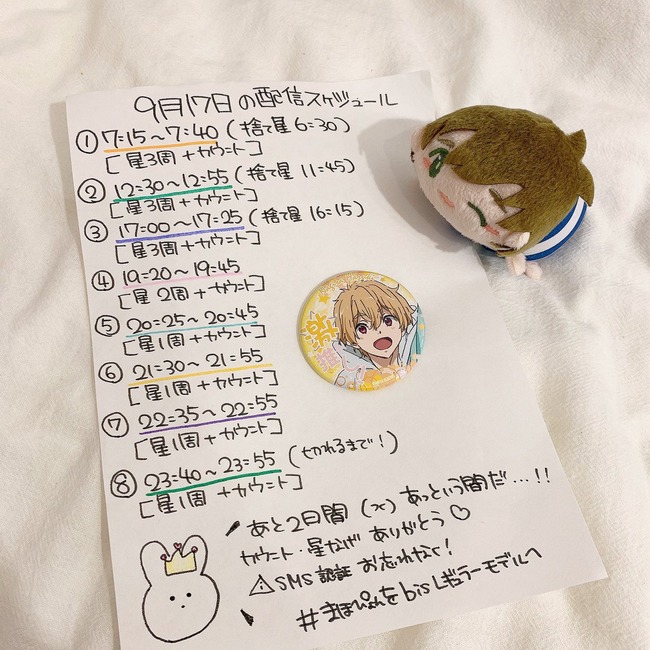 9月17日の配信スケジュール
① 7:15〜7:40 (捨て星 6:30)
[星3周+カウント]
② 12:30〜12:55 (捨て星 11:45)
[星3周+カウント]
③ 17:00〜17:25 (捨て星 16:15)
[星3周+カウント]
④ 19:20〜19:45
[星2周+カウント]
⑤ 20:25〜20:45
[星1周+カウント]
⑥ 21:30〜21:55
[星1周+カウント]
⑦ 22:35〜22:55
[星1周+カウント]
⑧ 23:40〜23:55 (切れるまで!)
[星1周+カウント]
あと2日間 あっという間だ…!!
カウント・星なげ ありがとう♡
⚠SMS認証 お忘れなく!
#まほぴょんをbisレギュラーモデルへ